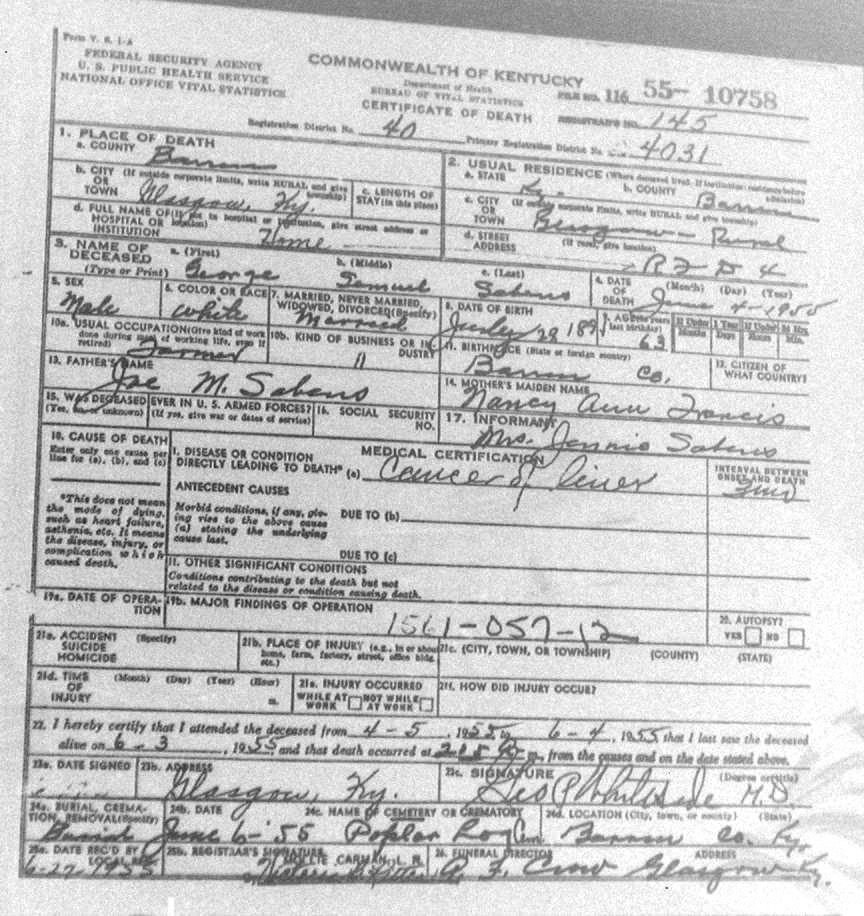 Form V. S. 1-A
FEDERAL SECURITY AGENCY
U. S. PUBLIC HEALTH SERVICE
NATIONAL OFFICE VITAL STATISTICS
COMMONWEALTH OF KENTUCKY
Department of Health
BUREAU OF VITAL STATISTICS
CERTIFICATE OF DEATH
FILE NO. 116 55- 10758
REGISTRAR'S NO. 145
Registration District No. 40
Primary Registration District No. 4031
1. PLACE OF DEATH
a. COUNTY Barren
b. CITY (If outside corporate limits, write RURAL and give township)
OR
TOWN Glasgow, Ky.
c. LENGTH OF
STAY (in this place)
d. FULL NAME OF (If not in hospital or institution, give street address or location)
HOSPITAL OR
INSTITUTION Home
2. USUAL RESIDENCE (Where deceased lived. If institution: residence before admission)
a. STATE Ky. b. COUNTY Barren
c. CITY (If outside corporate limits, write RURAL and give township)
OR
TOWN Glasgow - Rural
d. STREET (If rural, give location)
ADDRESS R F D 4
3. NAME OF DECEASED (Type or Print)
a. (First) b. (Middle) c. (Last)
George Samuel Sabens
4. DATE OF DEATH (Month) (Day) (Year)
June 4-1955
5. SEX
Male
6. COLOR OR RACE
White
7. MARRIED, NEVER MARRIED, WIDOWED, DIVORCED (Specify)
Married
8. DATE OF BIRTH
9. AGE (In years last birthday)
63
If Under 1 Year
Months Days
If Under 24 Hrs.
Hours Min.
10a. USUAL OCCUPATION (Give kind of work done during most of working life, even if retired)
Farmer
10b. KIND OF BUSINESS OR INDUSTRY
11. BIRTHPLACE (State or foreign country)
Barren Co.
12. CITIZEN OF WHAT COUNTRY?
13. FATHER'S NAME
Joe M. Sabens
14. MOTHER'S MAIDEN NAME
Nancy Ann Francis
15. WAS DECEASED EVER IN U. S. ARMED FORCES?
(Yes, no, or unknown) (If yes, give war or dates of service)
16. SOCIAL SECURITY NO.
17. INFORMANT
Mrs. Jennie Sabens
18. CAUSE OF DEATH
Enter only one cause per line for (a), (b), and (c)
*This does not mean the mode of dying, such as heart failure, asthenia, etc. It means the disease, injury, or complication which caused death.
MEDICAL CERTIFICATION
I. DISEASE OR CONDITION
DIRECTLY LEADING TO DEATH* (a) Cancer of liver
INTERVAL BETWEEN ONSET AND DEATH
ANTECEDENT CAUSES
Morbid conditions, if any, giving rise to the above cause (a) stating the underlying cause last.
DUE TO (b)
DUE TO (c)
11. OTHER SIGNIFICANT CONDITIONS
Conditions contributing to the death but not related to the disease or condition causing death.
19a. DATE OF OPERATION
19b. MAJOR FINDINGS OF OPERATION
1561-057-12
20. AUTOPSY?
YES NO
21a. ACCIDENT SUICIDE HOMICIDE (Specify)
21b. PLACE OF INJURY (e.g., in or about home, farm, factory, street, office bldg. etc.)
21c. (CITY, TOWN, OR TOWNSHIP) (COUNTY) (STATE)
21d. TIME OF INJURY (Month) (Day) (Year) (Hour) m.
21e. INJURY OCCURRED
WHILE AT WORK NOT WHILE AT WORK
21f. HOW DID INJURY OCCUR?
22. I hereby certify that I attended the deceased from 4-5, 1955 to 6-4, 1955 that I last saw the deceased
alive on 6-3, 1955, and that death occurred at m., from the causes and on the date stated above.
23a. DATE SIGNED
23b. ADDRESS
Glasgow, Ky.
23c. SIGNATURE (Degree or title)
Geo P Whiteside M.D.
24a. BURIAL, CREMATION, REMOVAL (Specify)
Burial
24b. DATE
June 6-'55
24c. NAME OF CEMETERY OR CREMATORY
Poplar Log Cem.
24d. LOCATION (City, town, or county) (State)
Barren Co. Ky.
25a. DATE REC'D BY LOCAL REG.
6-27-1955
25b. REGISTRAR'S SIGNATURE
MOLLIE CARMAN, L. R.
26. FUNERAL DIRECTOR ADDRESS
A. F. Crow Glasgow Ky.